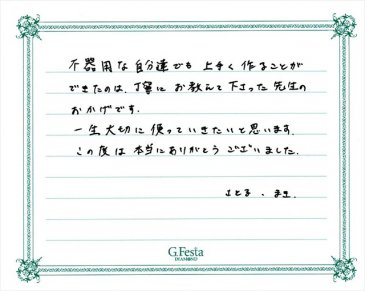 不器用な自分達でも上手く作ることが
できたのは、丁寧にお教えて下さった先生の
おかげです。
一生大切に使っていきたいと思います。
この度は本当にありがとうございました。
さとる、まき
G.Festa
DIAMOND